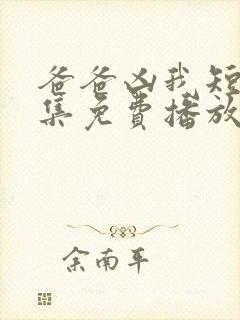 爸爸凶我短
集免费播放
余南平